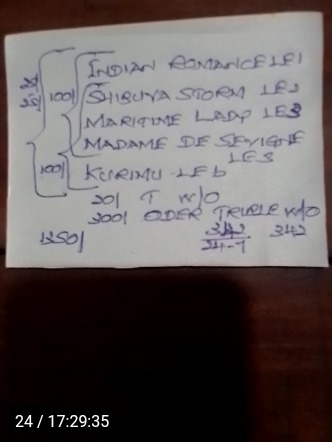 INDIAN ROMANCE LE1
100/ SHIBUYA STORM LE2
MARITIME LADY LE3
MADAME DE SEVIGNE
LE5
100/ KURIMU LE6
20/ T W/O
300/ ODER TRIPLE W/O
1350/ 342 342
24-7
24 / 17:29:35